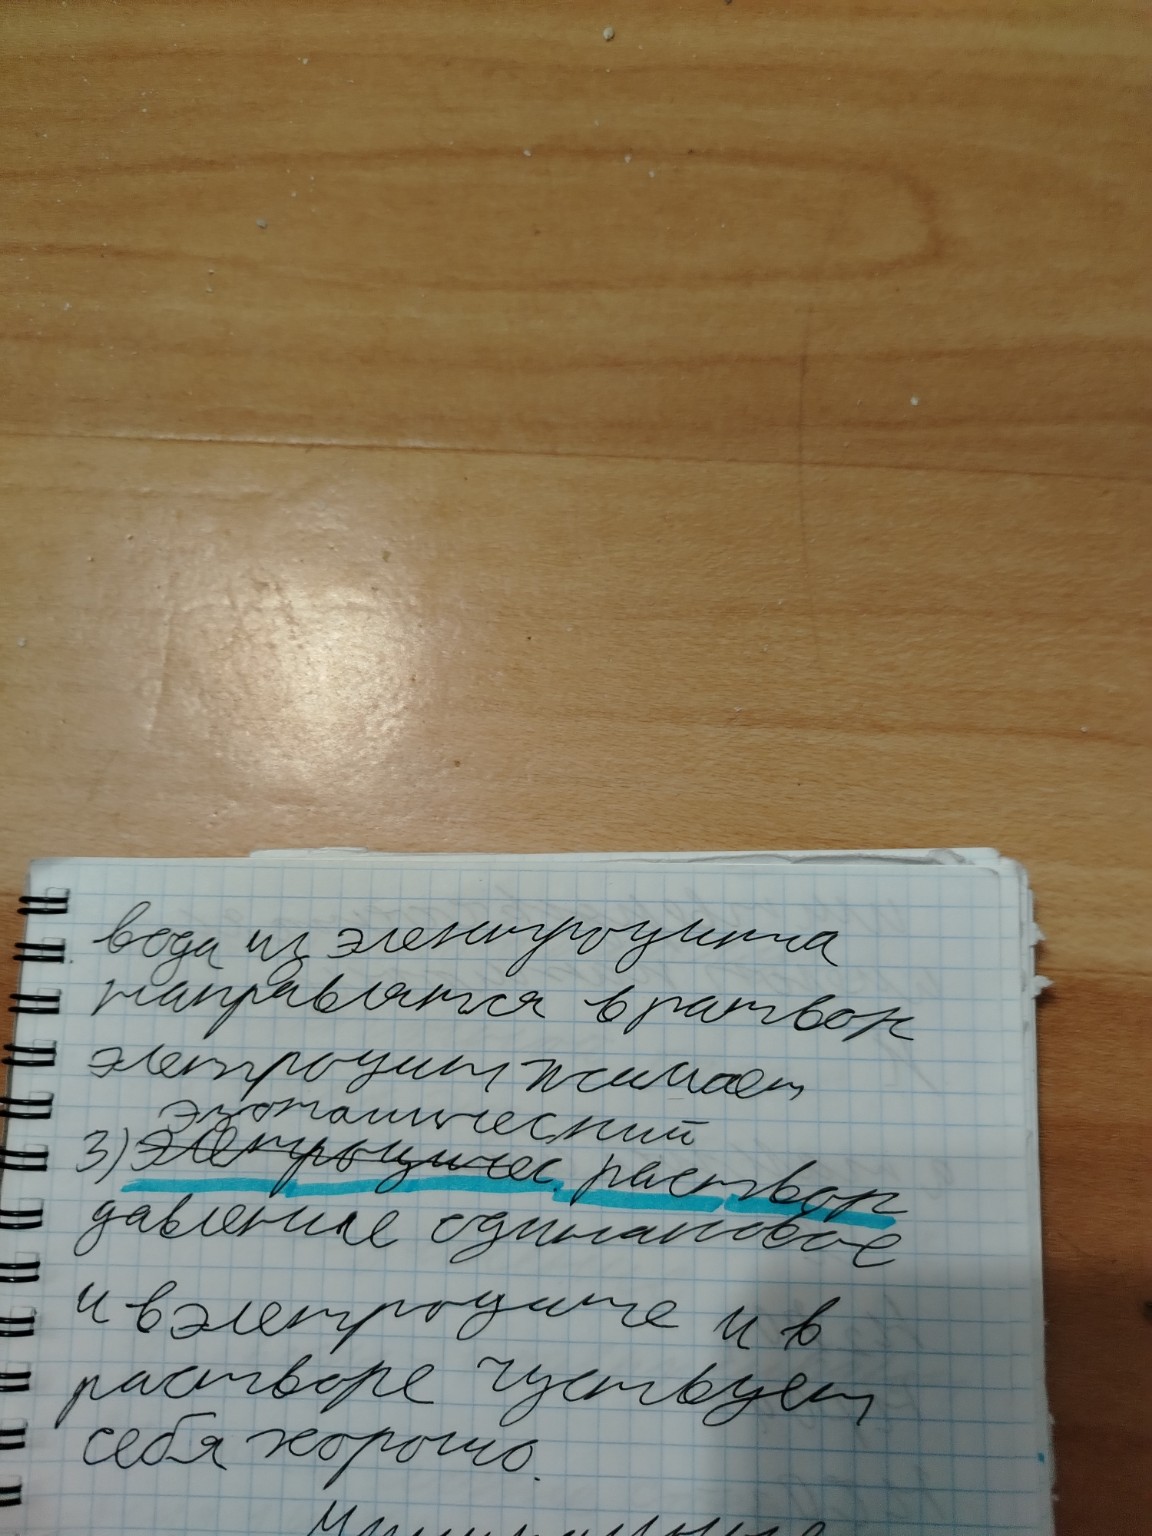 вода из электроцита
направляется в раствор
элетроцит жимает
эзотоничесний
3) элетроцичес раствор
давление одинановое
и в элетроците и в
растворе чуствует
себя хорошо.